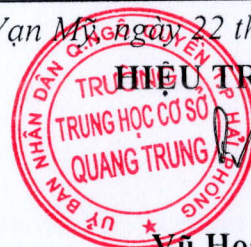 Vạn Mỹ, ngày 22 th
HIỆU TR
ỦY BAN NHÂN DÂN Q.NGÔ QUYỀN TP HẢI PHÒNG
TRƯỜNG
TRUNG HỌC CƠ SỞ
QUANG TRUNG
Vũ Ho